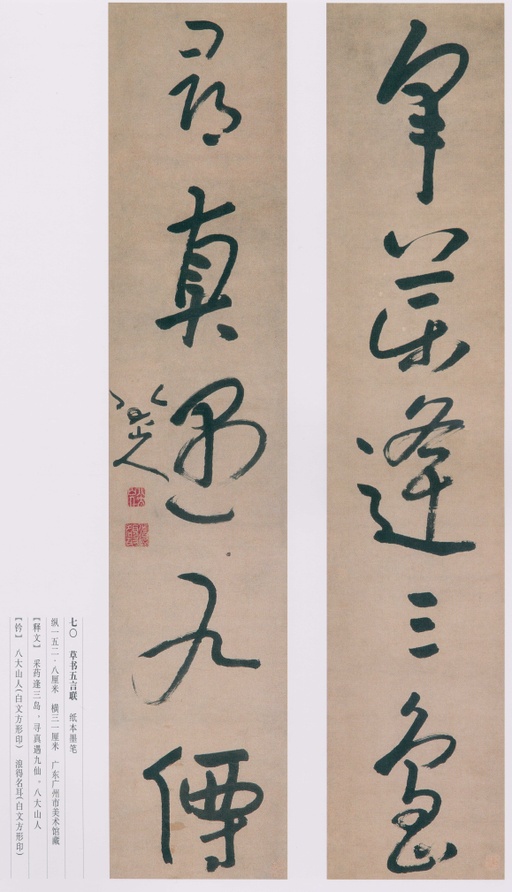 采藥逢三島
尋真遇九僊
八大山人
七〇　草书五言联　纸本墨笔
纵一五二·八厘米　横三一厘米　广东广州市美术馆藏
【释文】　采药逢三岛，寻真遇九仙。八大山人
【钤】　八大山人（白文方形印）　浪得名耳（白文方形印）